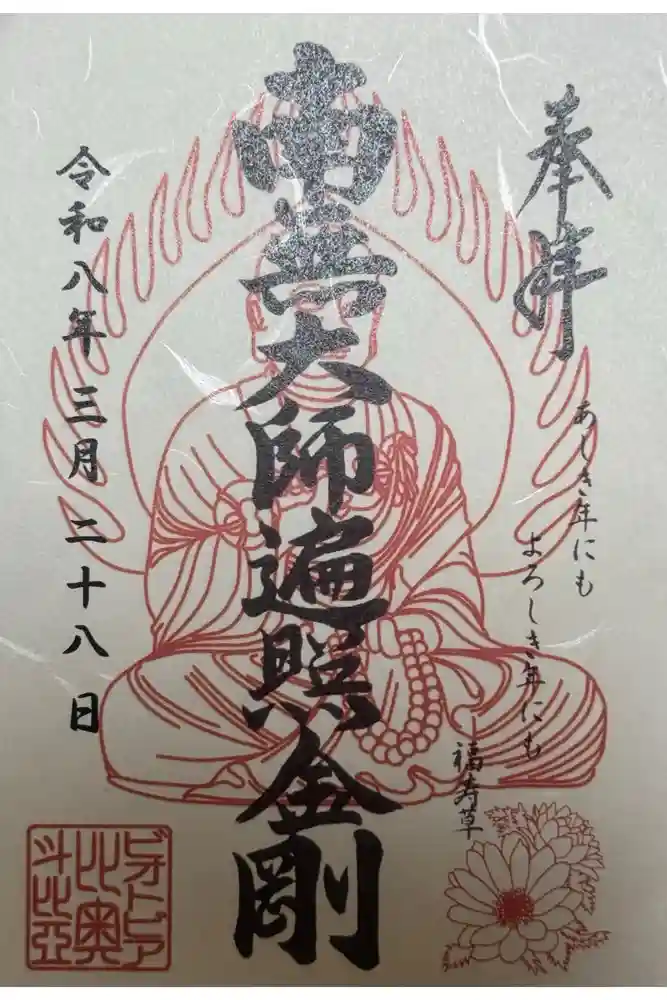 奉拝
あしき年にも
よろしき年にも
福寿草
南無大師遍照金剛
令和八年三月二十八日
ビオトピア
比奥
斗比亞